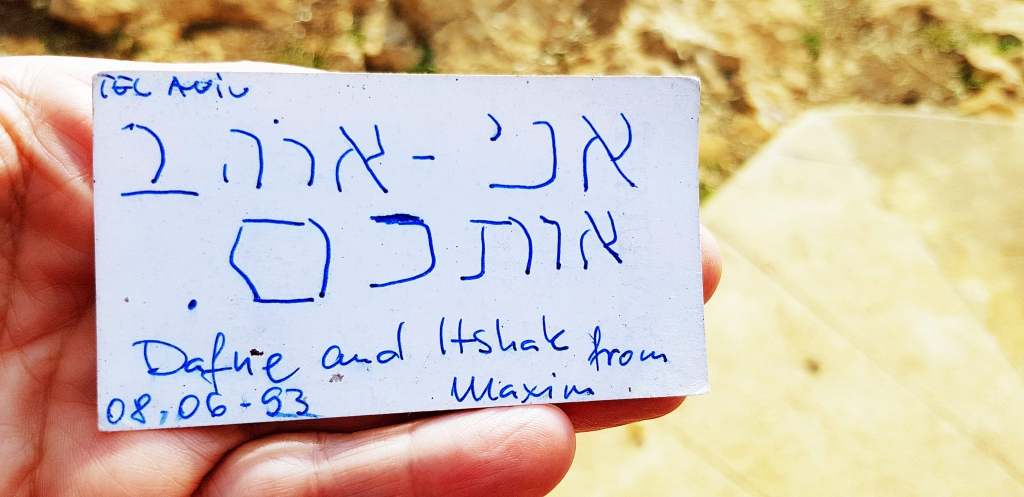 TEL AVIV
אני - אוהב
אותכם.
Dafne and Itshak from
Maxim.
08.06-93